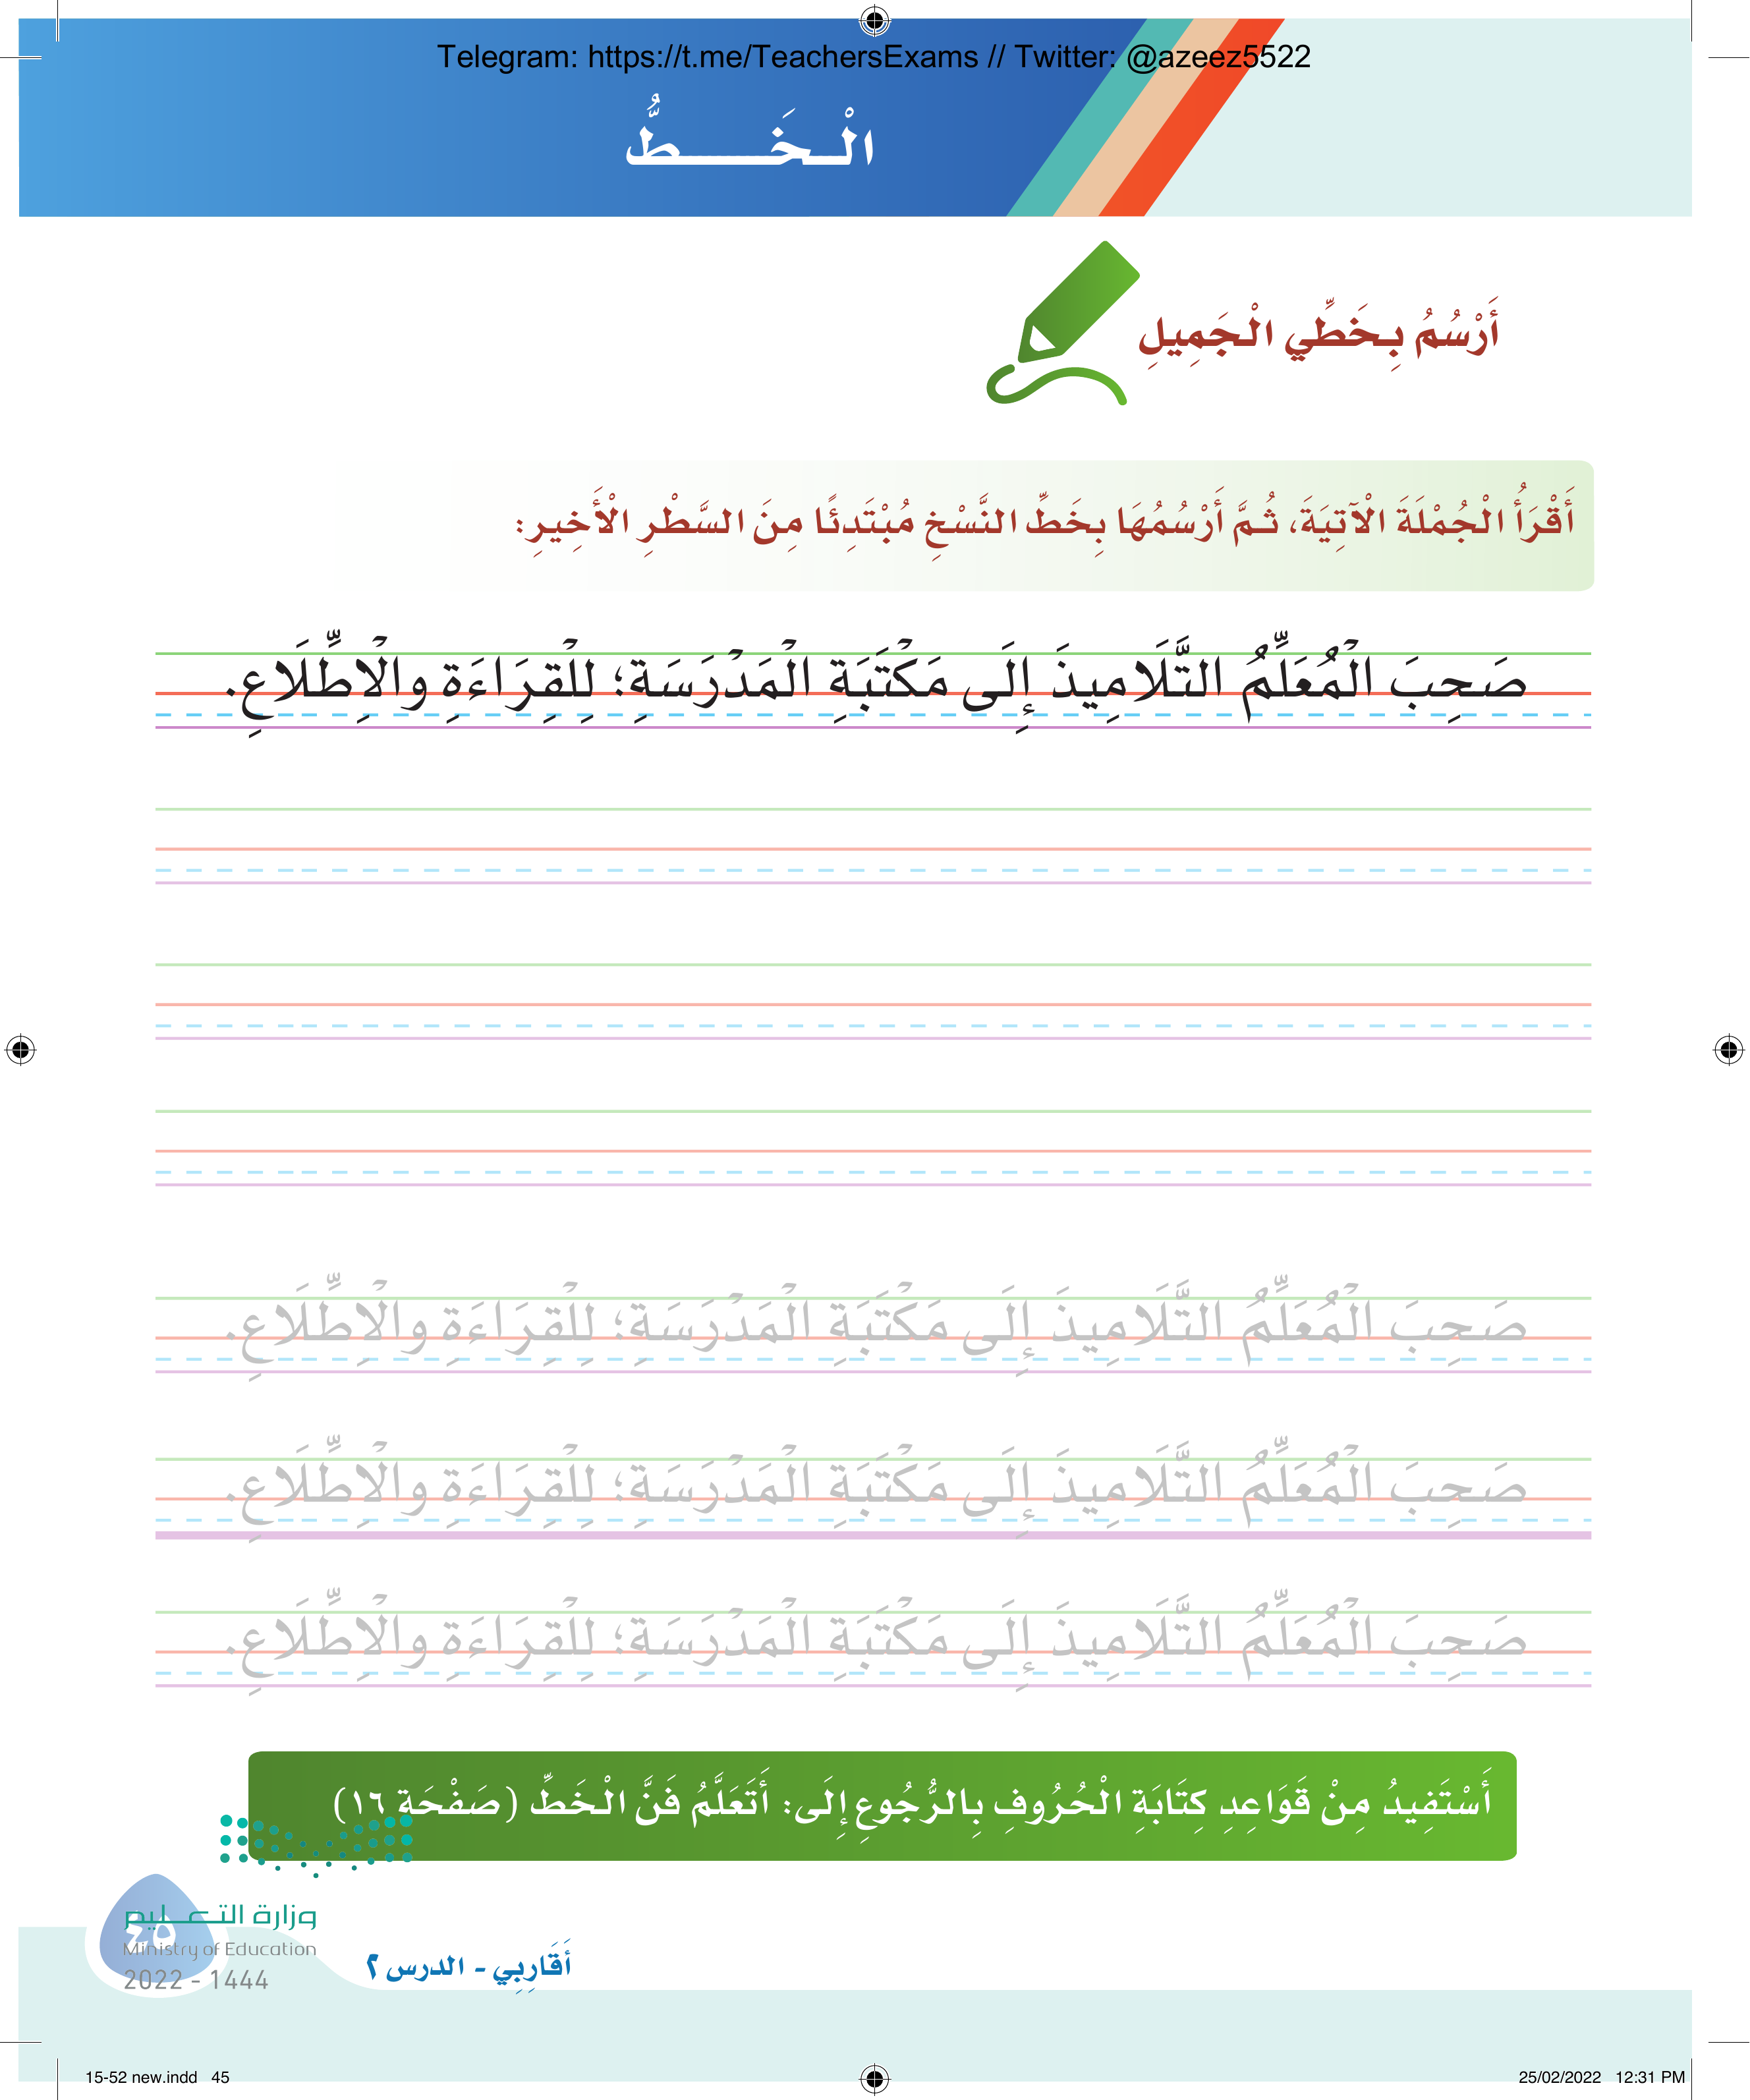 Telegram: https://t.me/TeachersExams // Twitter: @azeez5522
الْـخَــــطُّ
أَرْسُمُ بِخَطِّي الْجَمِيلِ
أَقْرَأُ الْجُمْلَةَ الْآتِيَةَ، ثُمَّ أَرْسُمُهَا بِخَطِّ النَّسْخِ مُبْتَدِئًا مِنَ السَّطْرِ الْأَخِيرِ:
صَحِبَ الْمُعَلِّمُ التَّلَامِيذَ إِلَى مَكْتَبَةِ الْمَدْرَسَةِ؛ لِلْقِرَاءَةِ والْاِطِّلَاعِ.
صَحِبَ الْمُعَلِّمُ التَّلَامِيذَ إِلَى مَكْتَبَةِ الْمَدْرَسَةِ؛ لِلْقِرَاءَةِ والْاِطِّلَاعِ.
صَحِبَ الْمُعَلِّمُ التَّلَامِيذَ إِلَى مَكْتَبَةِ الْمَدْرَسَةِ؛ لِلْقِرَاءَةِ والْاِطِّلَاعِ.
صَحِبَ الْمُعَلِّمُ التَّلَامِيذَ إِلَى مَكْتَبَةِ الْمَدْرَسَةِ؛ لِلْقِرَاءَةِ والْاِطِّلَاعِ.
أَسْتَفِيدُ مِنْ قَوَاعِدِ كِتَابَةِ الْحُرُوفِ بِالرُّجُوعِ إِلَى: أَتَعَلَّمُ فَنَّ الْخَطِّ (صَفْحَة ١٦)
وزارة التـعـليم
٤٥
Ministry of Education
2022 - 1444
أَقَارِبِي - الدرس ٢
15-52 new.indd 45
25/02/2022 12:31 PM